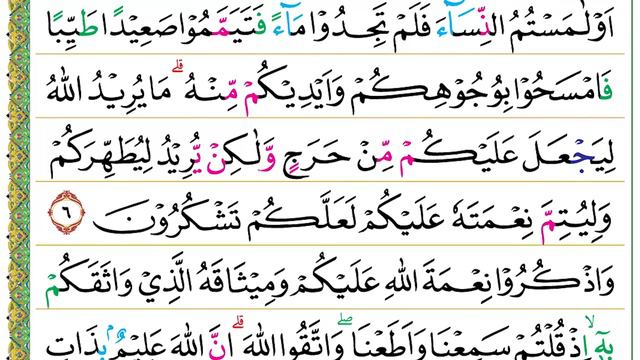 اَوْ لٰمَسْتُمُ النِّسَآءَ فَلَمْ تَجِدُوْا مَآءً فَتَيَمَّمُوْا صَعِيْدًا طَيِّبًا
فَامْسَحُوْا بِوُجُوْهِكُمْ وَاَيْدِيْكُمْ مِّنْهُ ۗ مَا يُرِيْدُ اللّٰهُ
لِيَجْعَلَ عَلَيْكُمْ مِّنْ حَرَجٍ وَّلٰكِنْ يُّرِيْدُ لِيُطَهِّرَكُمْ
وَلِيُتِمَّ نِعْمَتَهٗ عَلَيْكُمْ لَعَلَّكُمْ تَشْكُرُوْنَ ٦
وَاذْكُرُوْا نِعْمَةَ اللّٰهِ عَلَيْكُمْ وَمِيْثَاقَهُ الَّذِيْ وَاثَقَكُمْ
بِهٖٓ ۙ اِذْ قُلْتُمْ سَمِعْنَا وَاَطَعْنَا ۖ وَاتَّقُوا اللّٰهَ ۗ اِنَّ اللّٰهَ عَلِيْمٌ ۢ بِذَاتِ